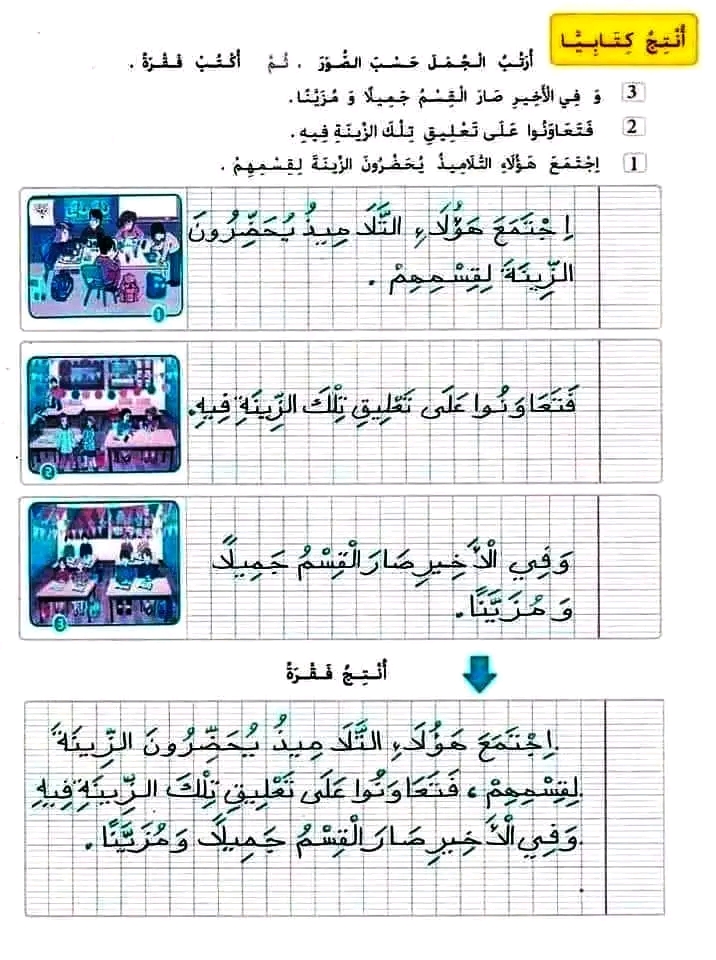 أُنْتِجُ كِتَابِيًّا
أُرَتِّبُ الْجُمَلَ حَسَبَ الصُّوَرِ ، ثُمَّ أَكْتُبُ فَقْرَةً .
3 وَ فِي الْأَخِيرِ صَارَ الْقِسْمُ جَمِيلًا وَ مُزَيَّنًا.
2 فَتَعَاوَنُوا عَلَى تَعْلِيقِ تِلْكَ الزِّينَةِ فِيهِ .
1 اِجْتَمَعَ هَؤُلَاءِ التَّلَامِيذُ يُحَضِّرُونَ الزِّينَةَ لِقِسْمِهِمْ .
اِجْتَمَعَ هَؤُلَاءِ التَّلَامِيذُ يُحَضِّرُونَ
الزِّينَةَ لِقِسْمِهِمْ .
1
فَتَعَاوَنُوا عَلَى تَعْلِيقِ تِلْكَ الزِّينَةِ فِيهِ.
2
وَفِي الْأَخِيرِ صَارَ الْقِسْمُ جَمِيلًا
وَ مُزَيَّنًا.
3
أُنْتِجُ فَقْرَةً
اِجْتَمَعَ هَؤُلَاءِ التَّلَامِيذُ يُحَضِّرُونَ الزِّينَةَ
لِقِسْمِهِمْ ، فَتَعَاوَنُوا عَلَى تَعْلِيقِ تِلْكَ الزِّينَةِ فِيهِ
وَفِي الْأَخِيرِ صَارَ الْقِسْمُ جَمِيلًا وَمُزَيَّنًا .